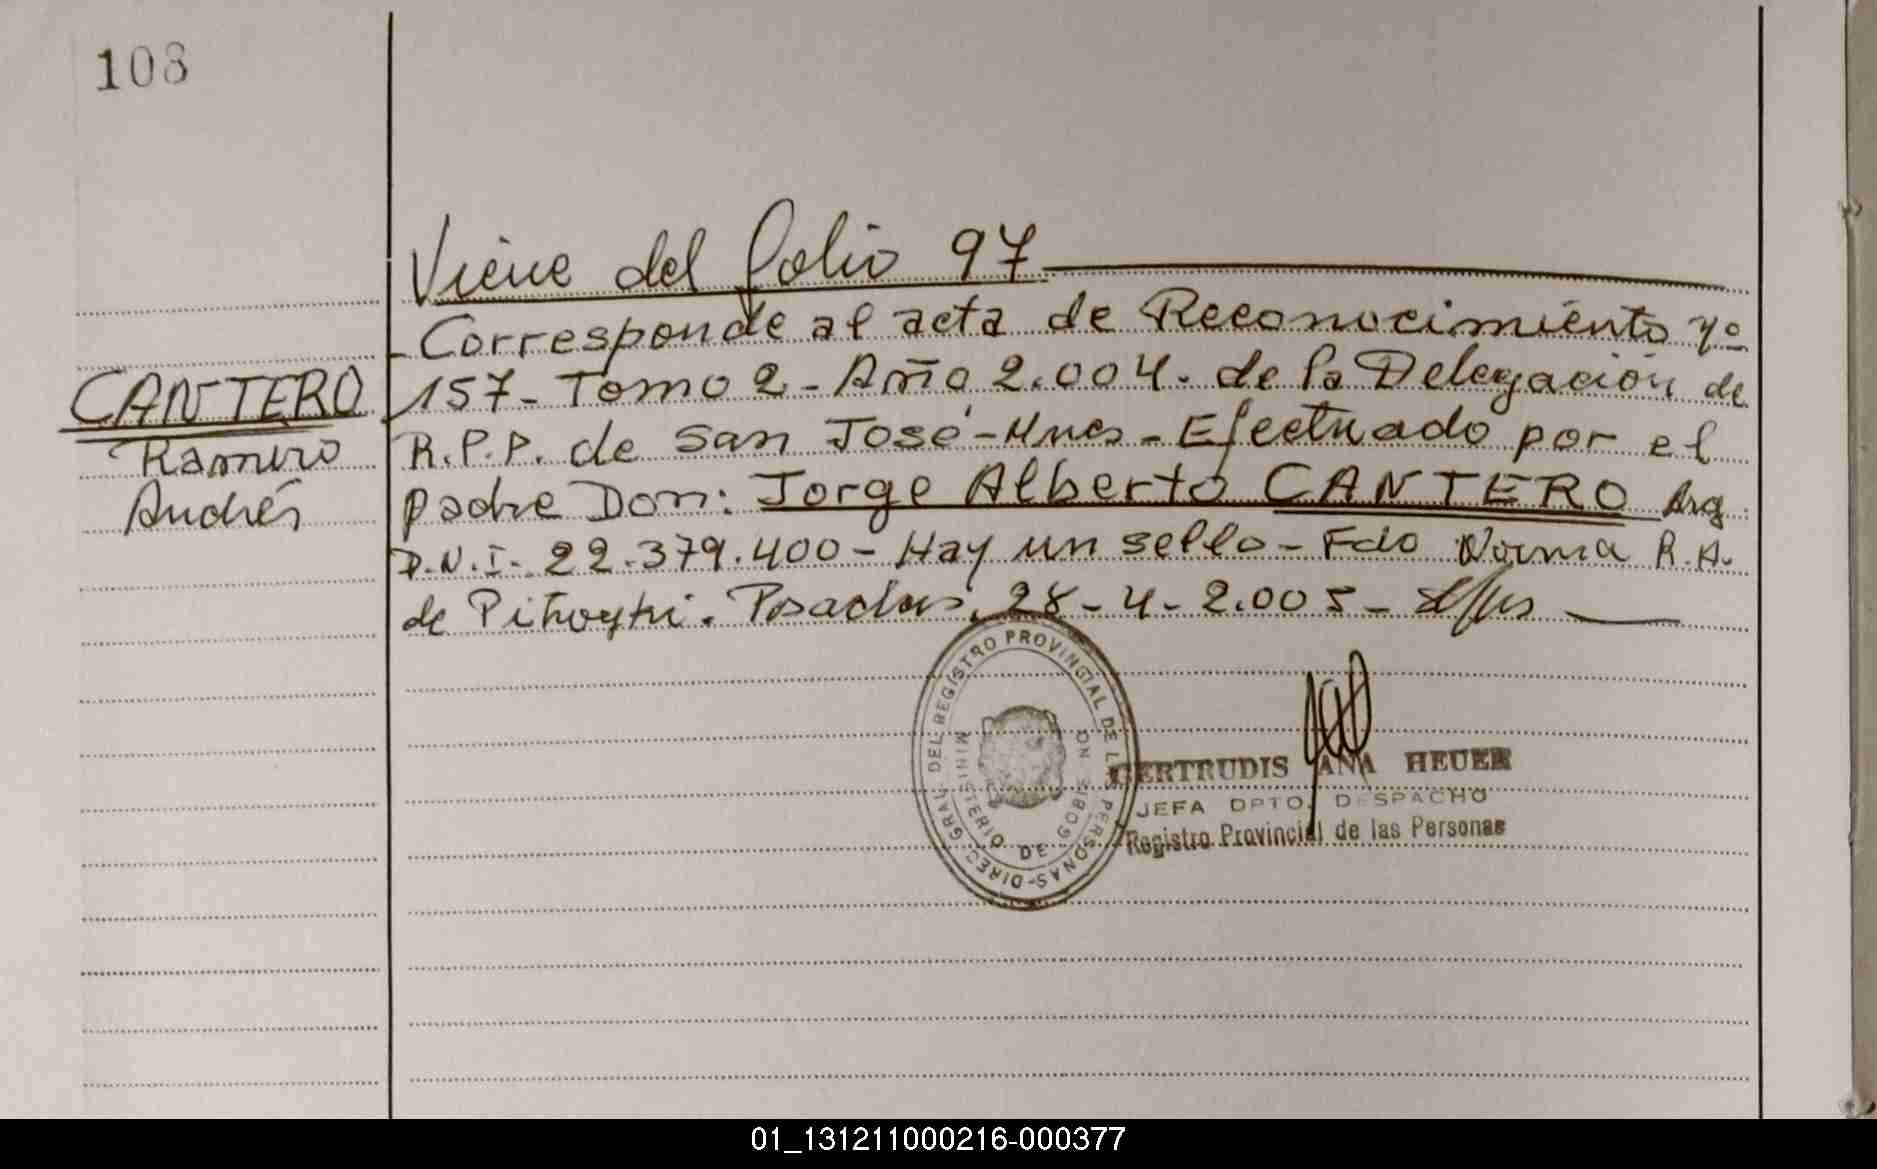 108
Viene del folio 97
Corresponde al acta de Reconocimiento nº
CANTERO
157- Tomo 2- Año 2.004. de la Delegación de
Ramiro
R.P.P. de San José-Mnes- Efectuado por el
Andrés
padre Don: Jorge Alberto CANTERO Arg
D.N.I. 22.379.400- Hay un sello- Fdo Norma R.A.
de Posadas, 28-4-2.005-
DIREC. GRAL. DEL REGISTRO PROVINCIAL DE LAS PERSONAS-
MINISTERIO DE GOBIERNO
GERTRUDIS ANA HEUER
JEFA DPTO. DESPACHO
Registro Provincial de las Personas
01_131211000216-000377